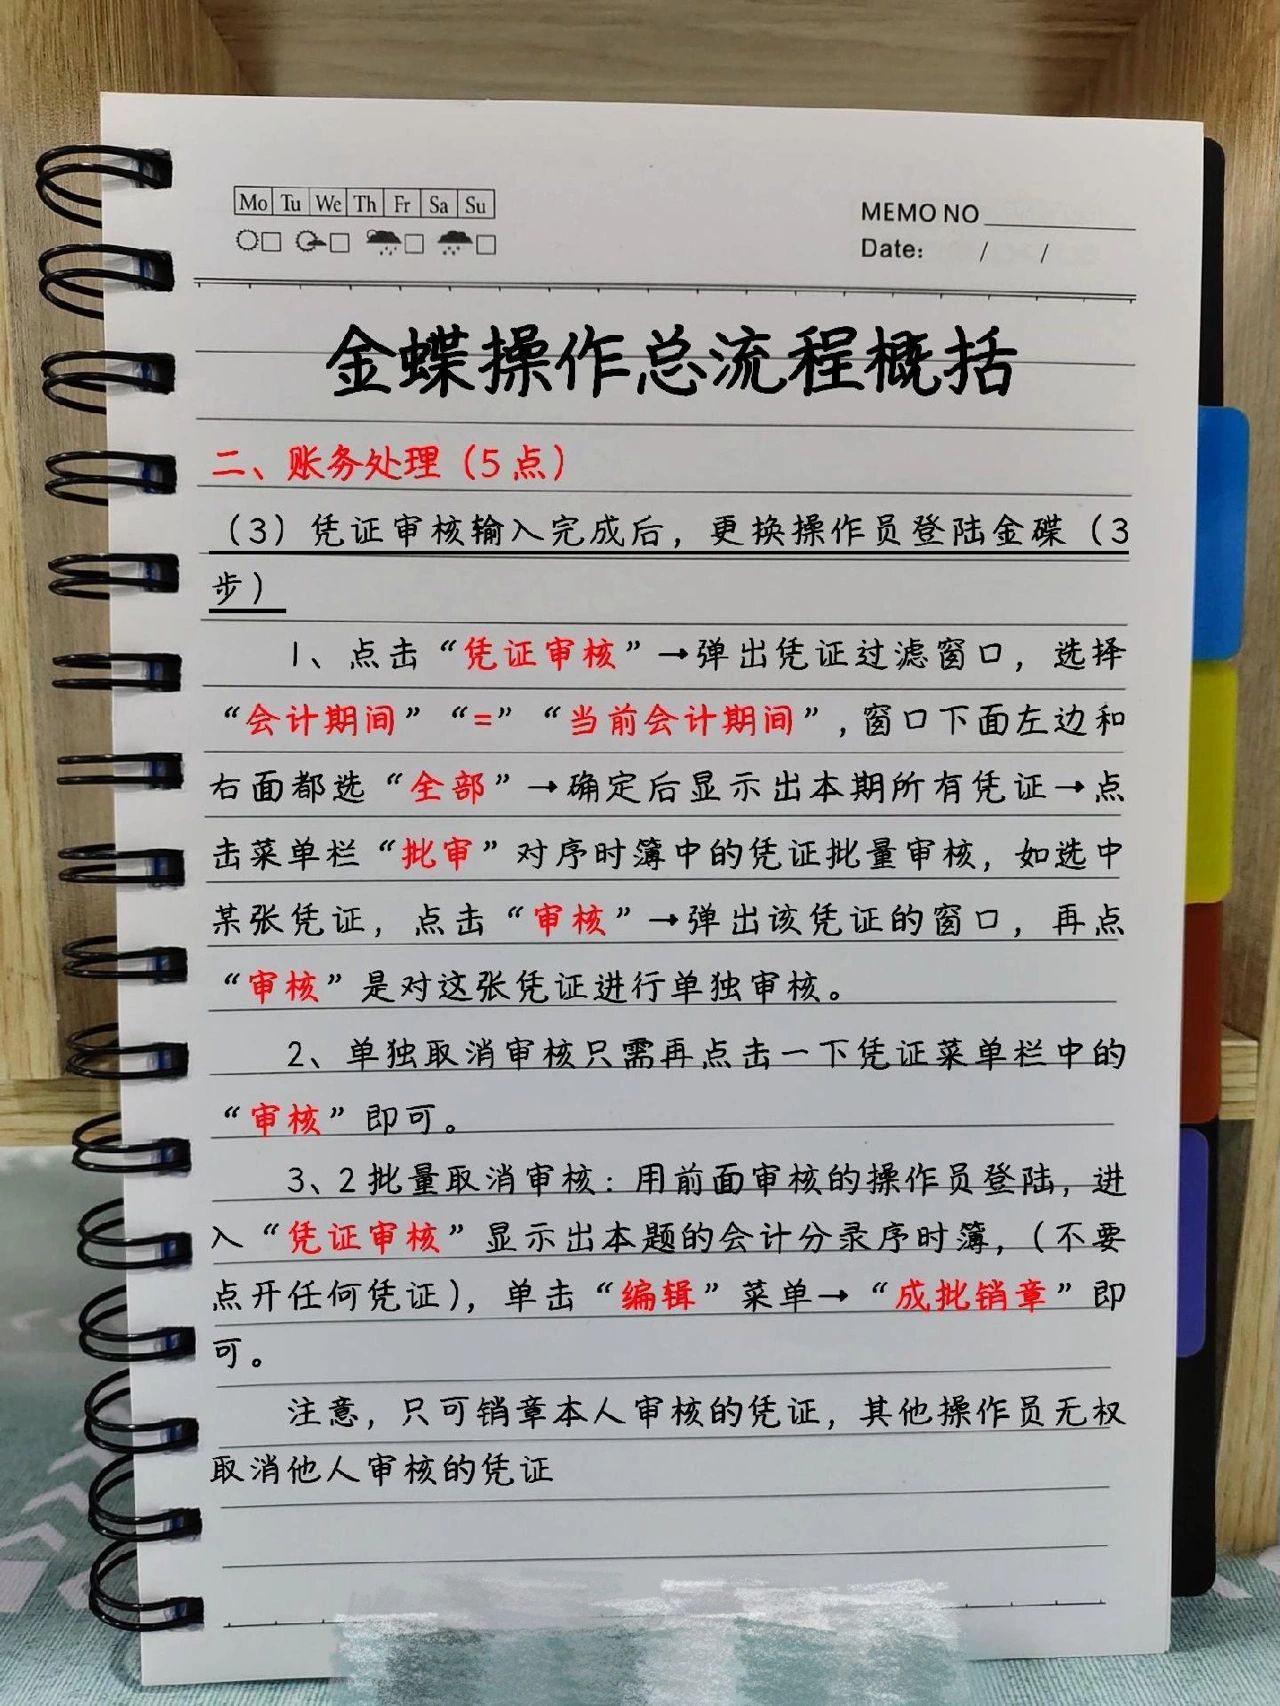 Mo Tu We Th Fr Sa Su
MEMO NO
Date: / /
金蝶操作总流程概括
二、账务处理（5点）
（3）凭证审核输入完成后，更换操作员登陆金碟（3
步）
1、点击“凭证审核”→弹出凭证过滤窗口，选择
“会计期间”“=”“当前会计期间”，窗口下面左边和
右面都选“全部”→确定后显示出本期所有凭证→点
击菜单栏“批审”对序时簿中的凭证批量审核，如选中
某张凭证，点击“审核”→弹出该凭证的窗口，再点
“审核”是对这张凭证进行单独审核。
2、单独取消审核只需再点击一下凭证菜单栏中的
“审核”即可。
3、2批量取消审核：用前面审核的操作员登陆，进
入“凭证审核”显示出本题的会计分录序时簿，（不要
点开任何凭证），单击“编辑”菜单→“成批销章”即
可。
注意，只可销章本人审核的凭证，其他操作员无权
取消他人审核的凭证